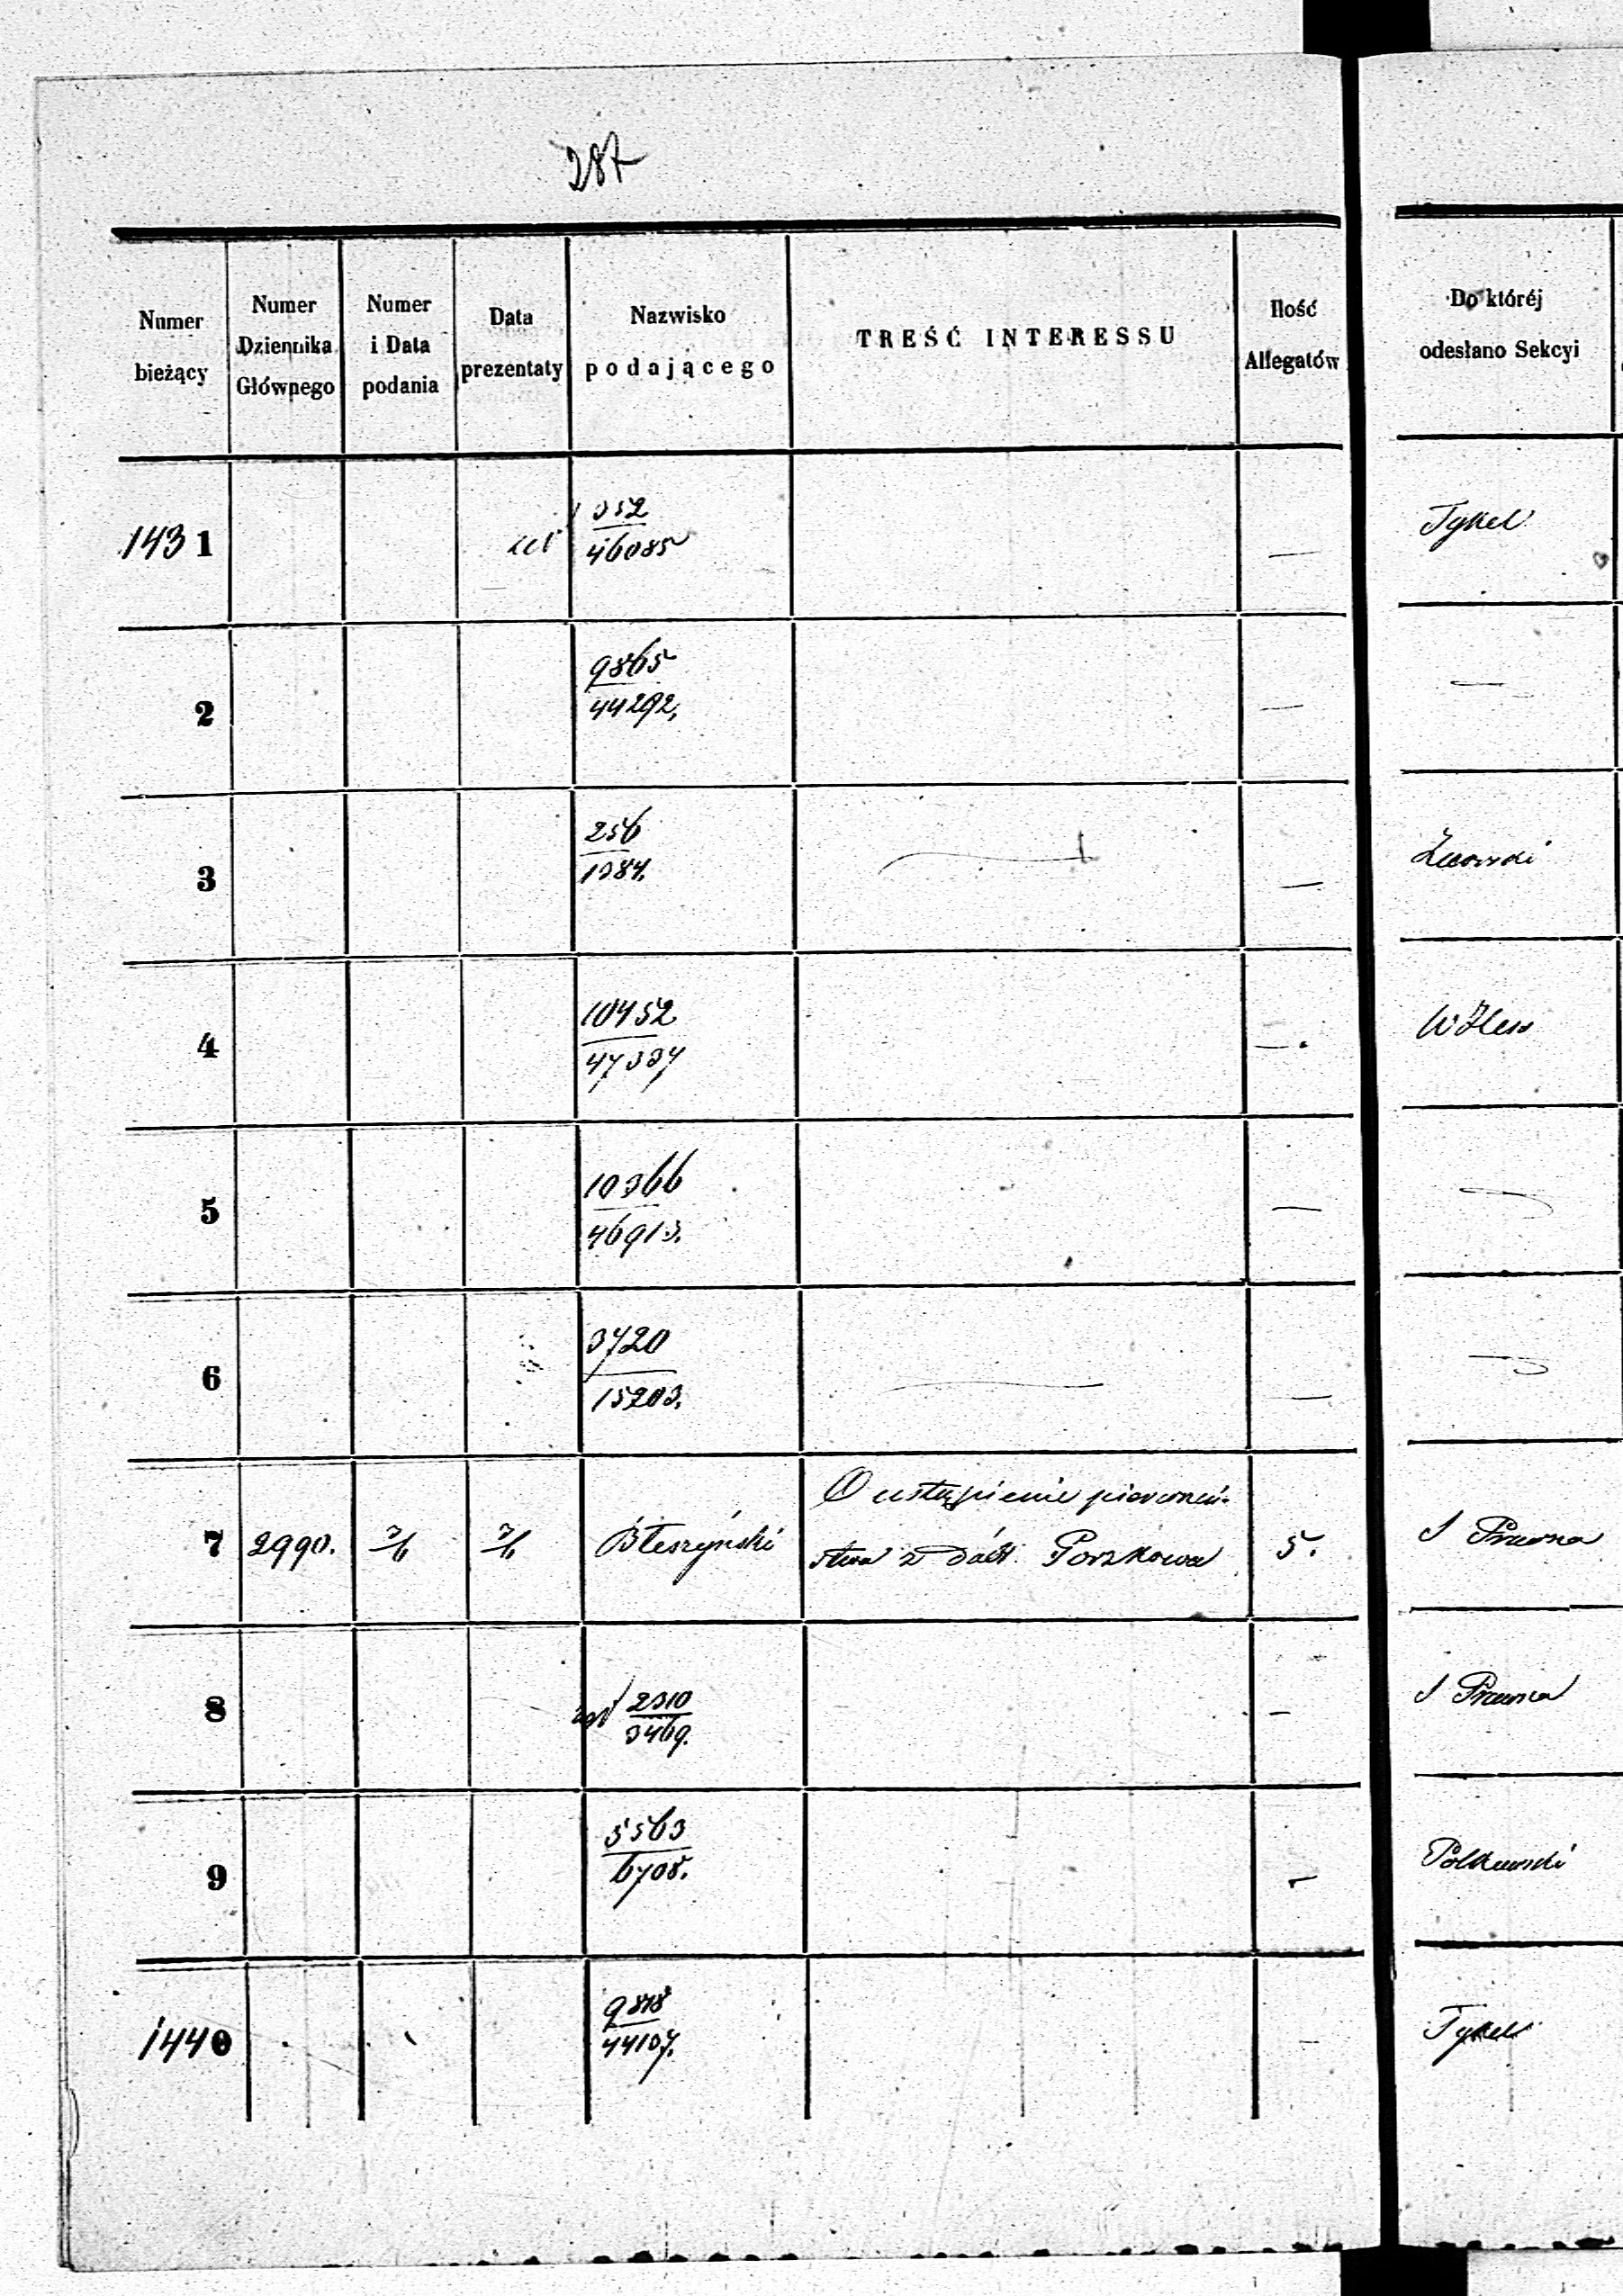 287
Numer bieżący
Numer Dziennika Głównego
Numer i Data podania
Data prezentaty
Nazwisko podającego
TREŚĆ INTERESSU
Ilość Allegatów
Do któréj odesłano Sekcyi
1431
46085
Tykel
2
9865
44292.
3
256
1384.
4
10452
47337
5
10366
46913.
6
3720
15203.
7 2990. 3/6 3/6 Błeszyński
O ustąpienie pierwszeń-
stwa z dóbr 5. S Prawna
8
2310
3469.
S Prawna
9
5563
6708.
Polkowski
1440
44107.
Tykel